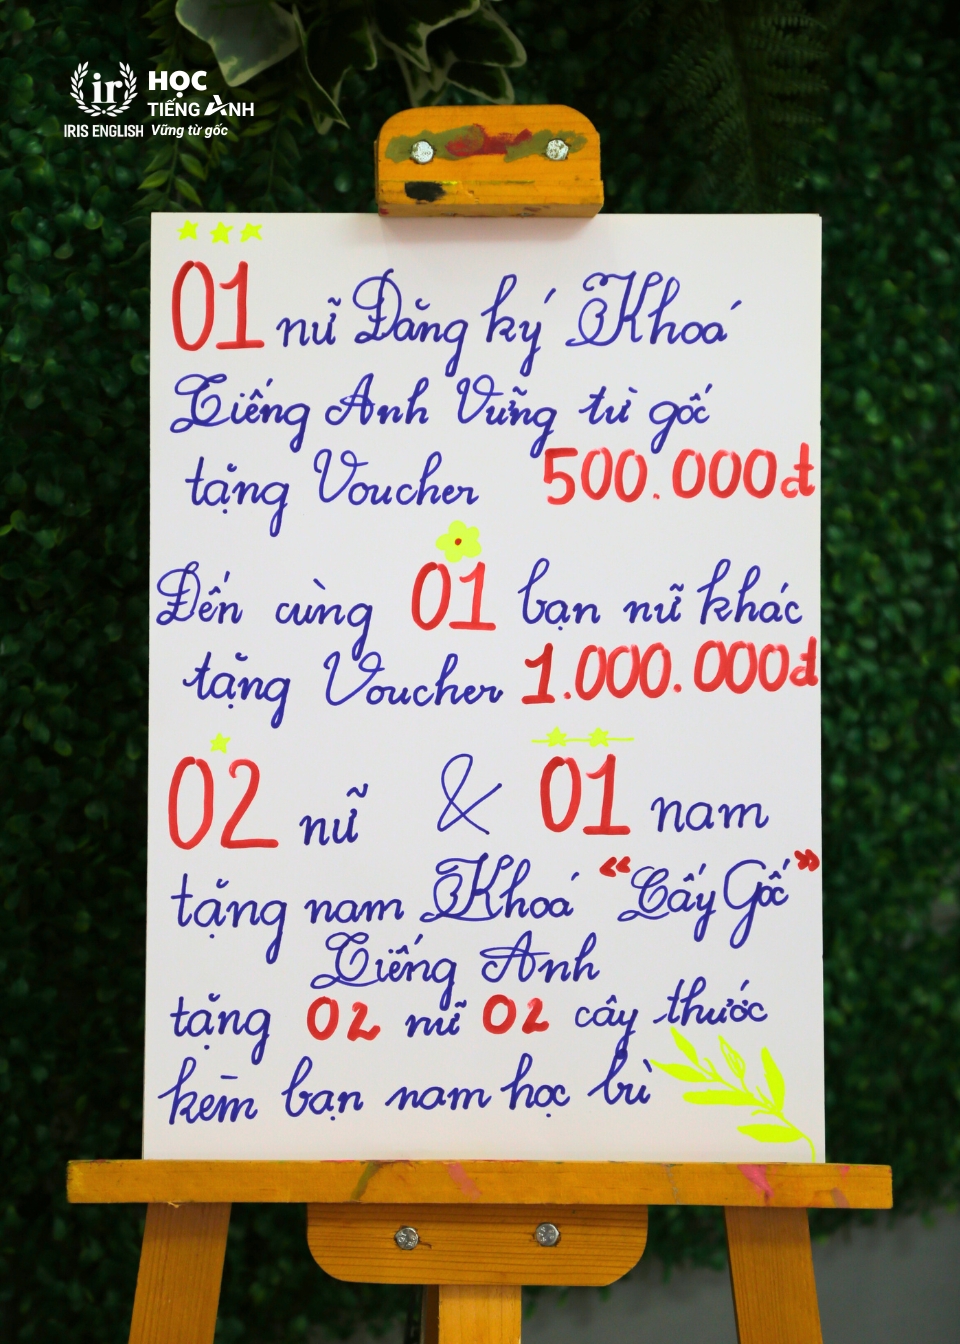 ir
IRIS ENGLISH
HỌC
TIẾNG ANH
Vững từ gốc
01 nữ Đăng ký Khoá
Tiếng Anh Vững từ gốc
tặng Voucher 500.000đ
Đến cùng 01 bạn nữ khác
tặng Voucher 1.000.000đ
02 nữ & 01 nam
tặng nam Khoá "Lấy Gốc"
Tiếng Anh
tặng 02 nữ 02 cây thước
kèm bạn nam học bù